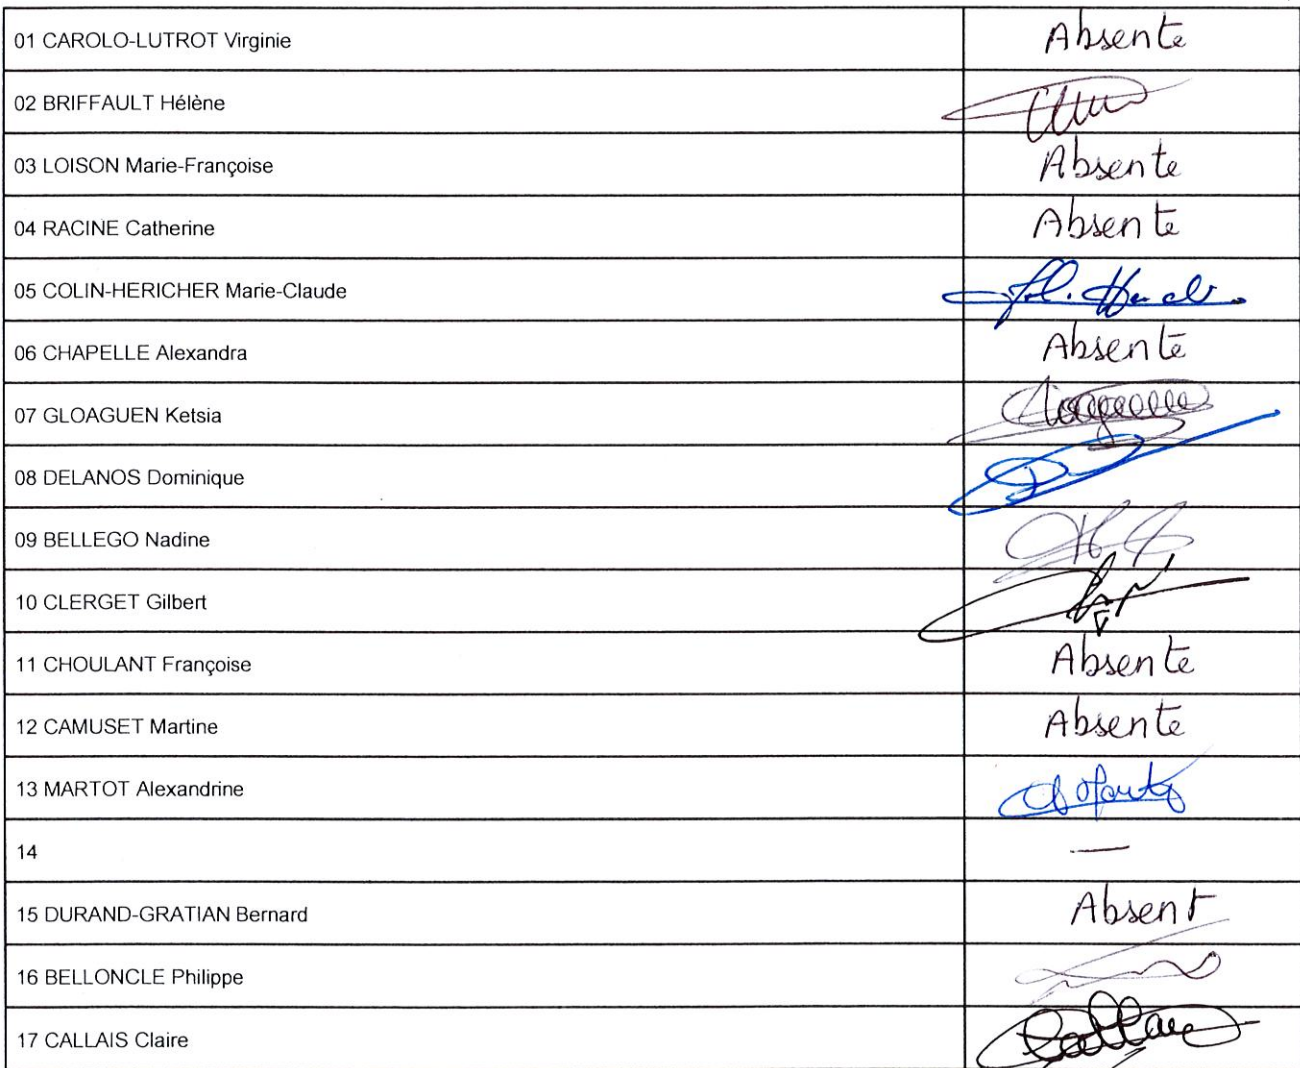 01 CAROLO-LUTROT Virginie Absente
02 BRIFFAULT Hélène
03 LOISON Marie-Françoise Absente
04 RACINE Catherine Absente
05 COLIN-HERICHER Marie-Claude
06 CHAPELLE Alexandra Absente
07 GLOAGUEN Ketsia
08 DELANOS Dominique
09 BELLEGO Nadine
10 CLERGET Gilbert
11 CHOULANT Françoise Absente
12 CAMUSET Martine Absente
13 MARTOT Alexandrine
14 —
15 DURAND-GRATIAN Bernard Absent
16 BELLONCLE Philippe
17 CALLAIS Claire Callais